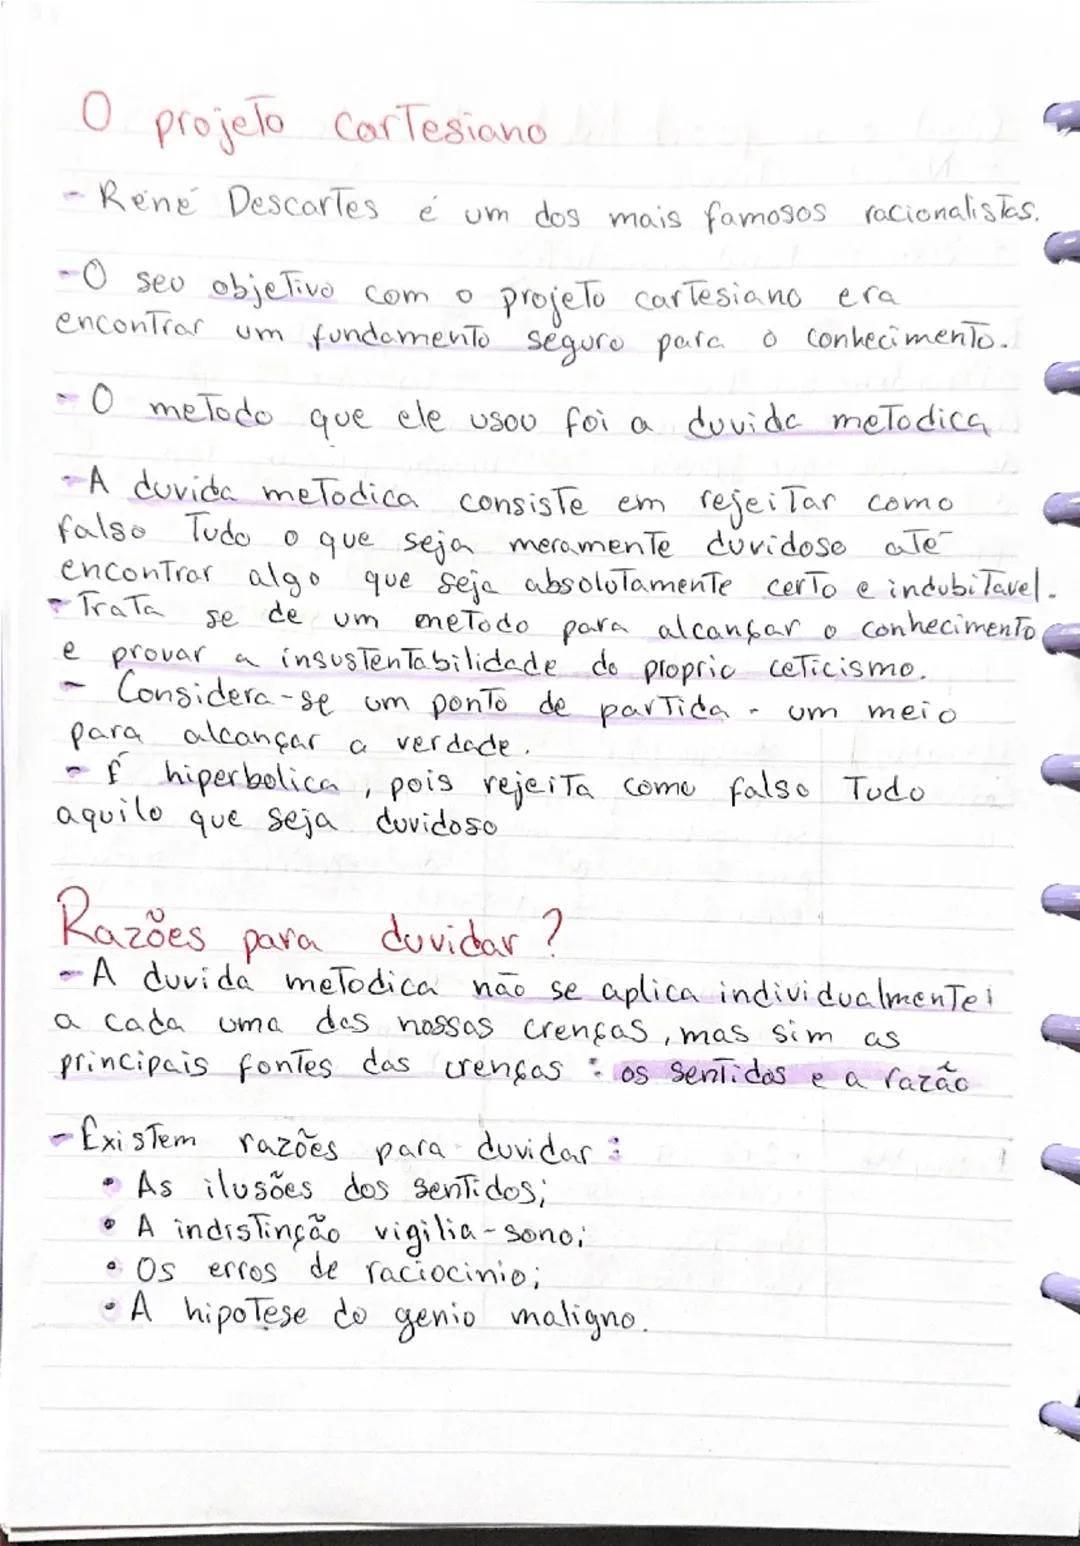 O projeto cartesiano
- René Descartes é um dos mais famosos racionalistas.
- O seu objetivo com o projeto cartesiano era
encontrar um fundamento seguro para o conhecimento.
- O metodo que ele usou foi a duvida metodica
- A duvida metodica consiste em rejeitar como
falso tudo o que seja meramente duvidoso até
encontrar algo que seja absolutamente certo e indubitavel.
- Trata se de um metodo para alcançar o conhecimento
e provar a insustentabilidade do proprio ceticismo.
- Considera-se um ponto de partida - um meio
para alcançar a verdade.
- É hiperbolica, pois rejeita como falso tudo
aquilo que seja duvidoso
Razões para duvidar?
- A duvida metodica não se aplica individualmente
a cada uma das nossas crenças, mas sim as
principais fontes das crenças: os sentidos e a razão
- Existem razões para duvidar:
• As ilusões dos sentidos;
• A indistinção vigilia-sono;
• Os erros de raciocinio;
• A hipotese do genio maligno.